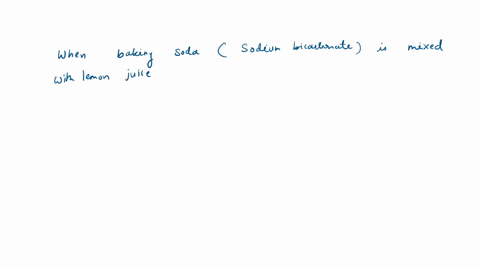 When baking soda ( Sodium bicarbonate) is mixed
with lemon juice